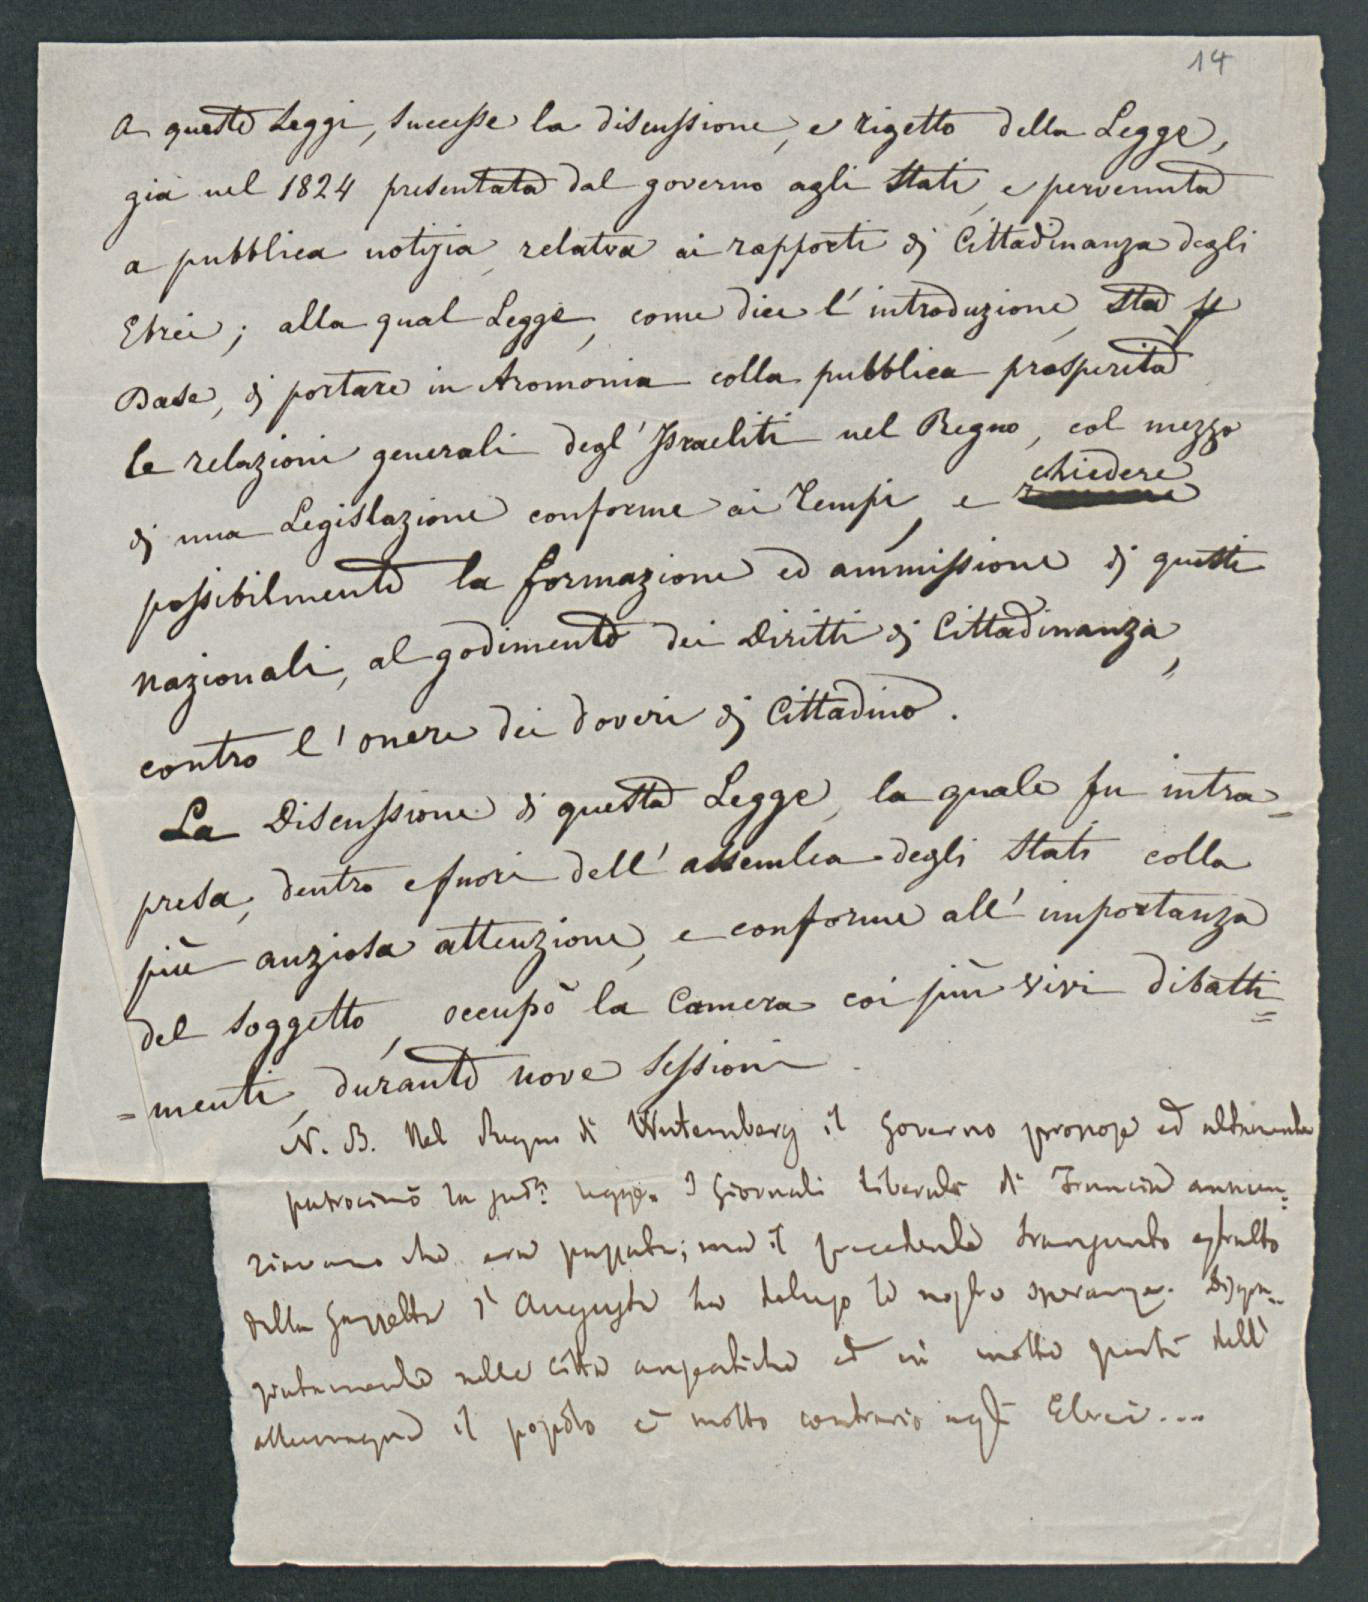 14
A queste Leggi, successe la discussione, e rigetto della Legge,
già nel 1824 presentata dal governo agli Stati, e pervenuta
a pubblica notizia, relatva ai rapporti di Cittadinanza degli
Ebrei; alla qual Legge, come dice l'introduzione, sta per
Base, di portare in Aromonia colla pubblica prosperità
le relazioni generali degl'Israeliti nel Regno, col mezzo
di una Legislazione conforme ai Tempi, e chiedere
possibilmente la formazione ed ammissione di questi
nazionali, al godimento dei Diritti di Cittadinanza,
contro l'onere dei doveri di Cittadino.
La Discussione di questa Legge, la quale fu intra=
presa, dentro e fuori dell'assemblea degli Stati colla
più anziosa attenzione, e conforme all'importanza
del soggetto, occupò la Camera coi più vivi dibatti=
=menti, durante nove sessioni.
N. B. Nel Regno di Wutemberg il Governo propose ed
patrocinò la legge. I Giornali liberali di Francia annun=
ziavano che era passata; ma il precedente transunto estratto
della Gazzetta d'Augusta ha deluso le nostre speranze. Disgra=
ziatamente nelle città anseatiche ed in molte parti dell'
allemagna il popolo è molto contrario agli Ebrei....